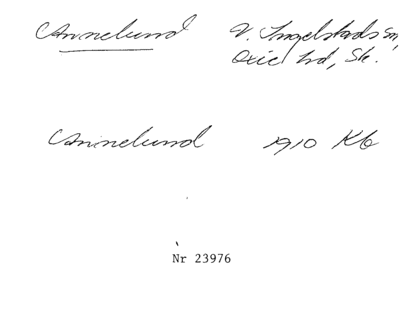 Annelund V. Ingelstads sn,
Oxie hd, Sk.
Annelund 1910 Kb
Nr 23976